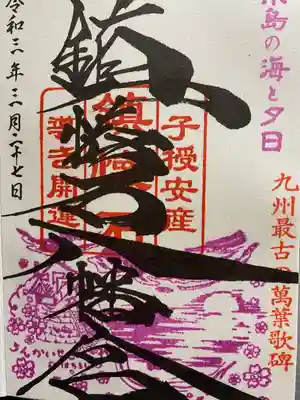 糸島の海と夕日
九州最古の萬葉歌碑
子授安産
鎮懐石
導き開運
鎮懐石八幡宮
令和三年三月二十七日